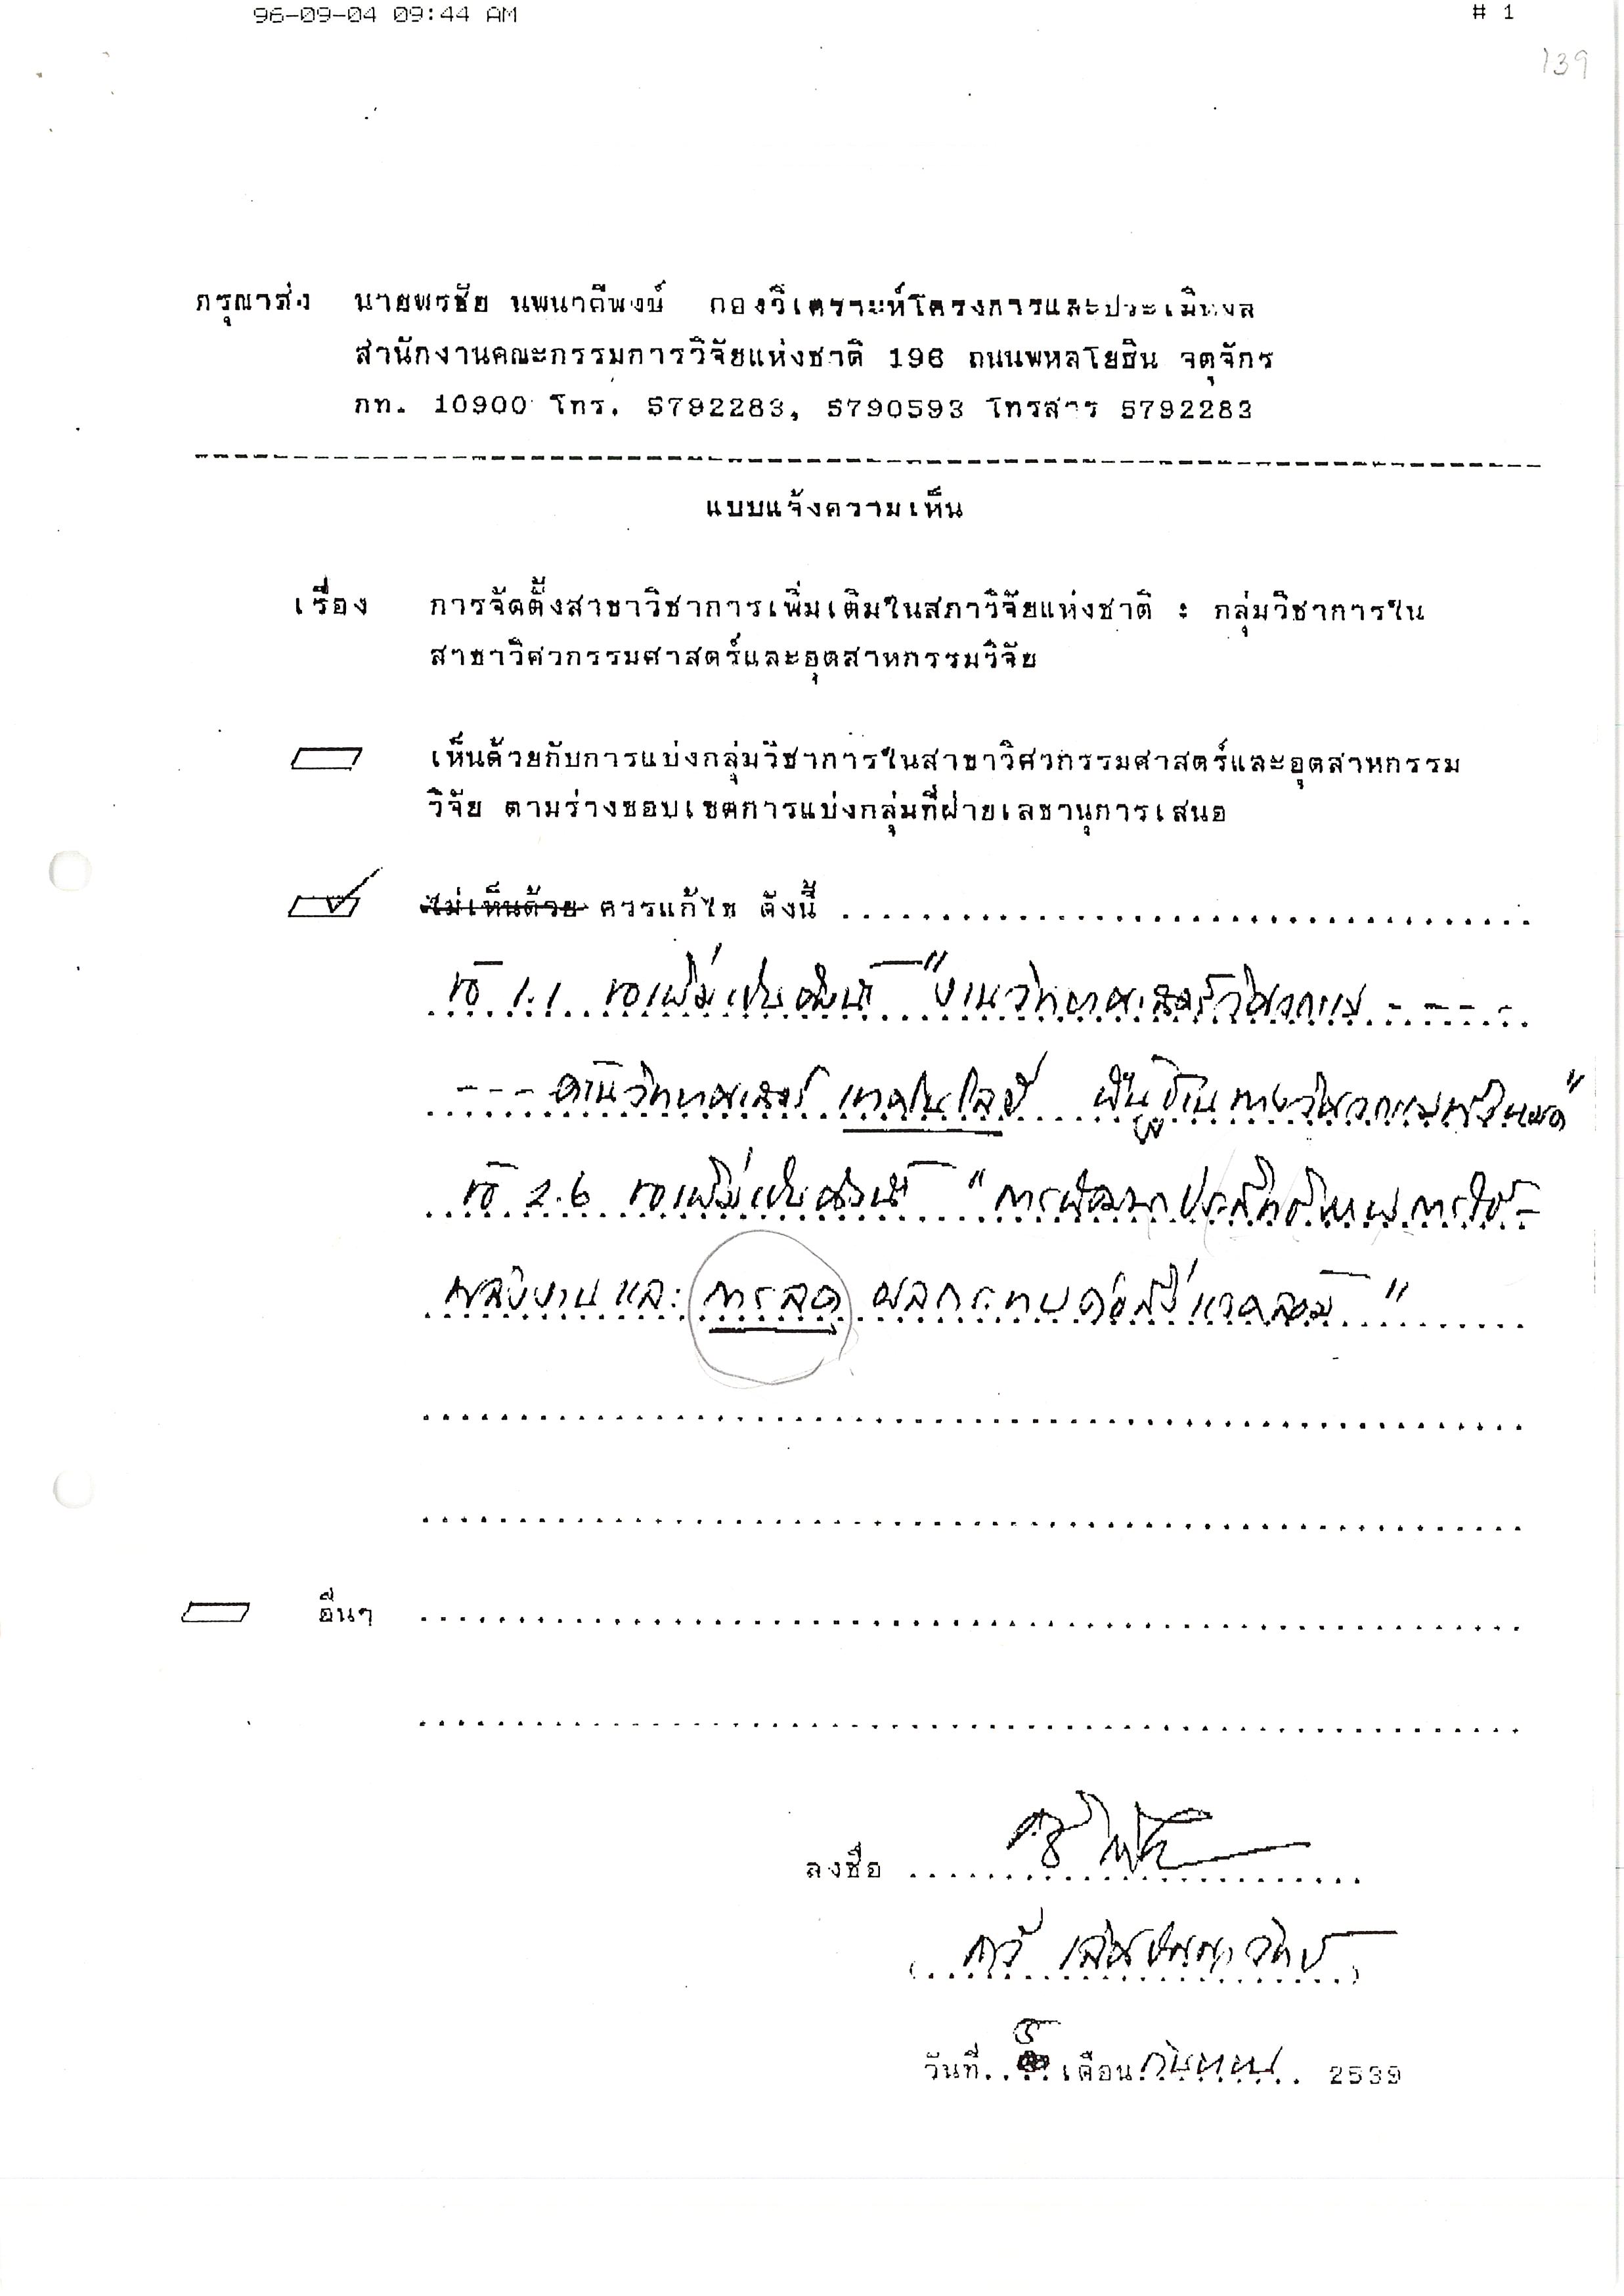 96-09-04 09:44 AM # 1
139
กรุณาส่ง นายพรชัย นพนาคีพงษ์ กองวิเคราะห์โครงการและประเมินผล
สำนักงานคณะกรรมการวิจัยแห่งชาติ 196 ถนนพหลโยธิน จตุจักร
กท. 10900 โทร. 5792283, 5790593 โทรสาร 5792283
แบบแจ้งความเห็น
เรื่อง การจัดตั้งสาขาวิชาการเพิ่มเติมในสภาวิจัยแห่งชาติ : กลุ่มวิชาการใน
สาขาวิศวกรรมศาสตร์และอุตสาหกรรมวิจัย
เห็นด้วยกับการแบ่งกลุ่มวิชาการในสาขาวิศวกรรมศาสตร์และอุตสาหกรรม
วิจัย ตามร่างขอบเขตการแบ่งกลุ่มที่ฝ่ายเลขานุการเสนอ
ไม่เห็นด้วย ควรแก้ไข ดังนี้
ข้อ 1.1 ขอเพิ่มเป็นดังนี้ "งานวิทยาศาสตร์วิศวกรรม - - - -
- - - ด้านวิทยาศาสตร์ เทคโนโลยี พื้นฐานทางวิศวกรรมทั้งหมด"
ข้อ 2.6 ขอเพิ่มเป็นดังนี้ "การพัฒนาประสิทธิภาพการใช้
พลังงานและการลดผลกระทบต่อสิ่งแวดล้อม"
อื่นๆ
ลงชื่อ
วันที่ 5 เดือน กันยายน 2539